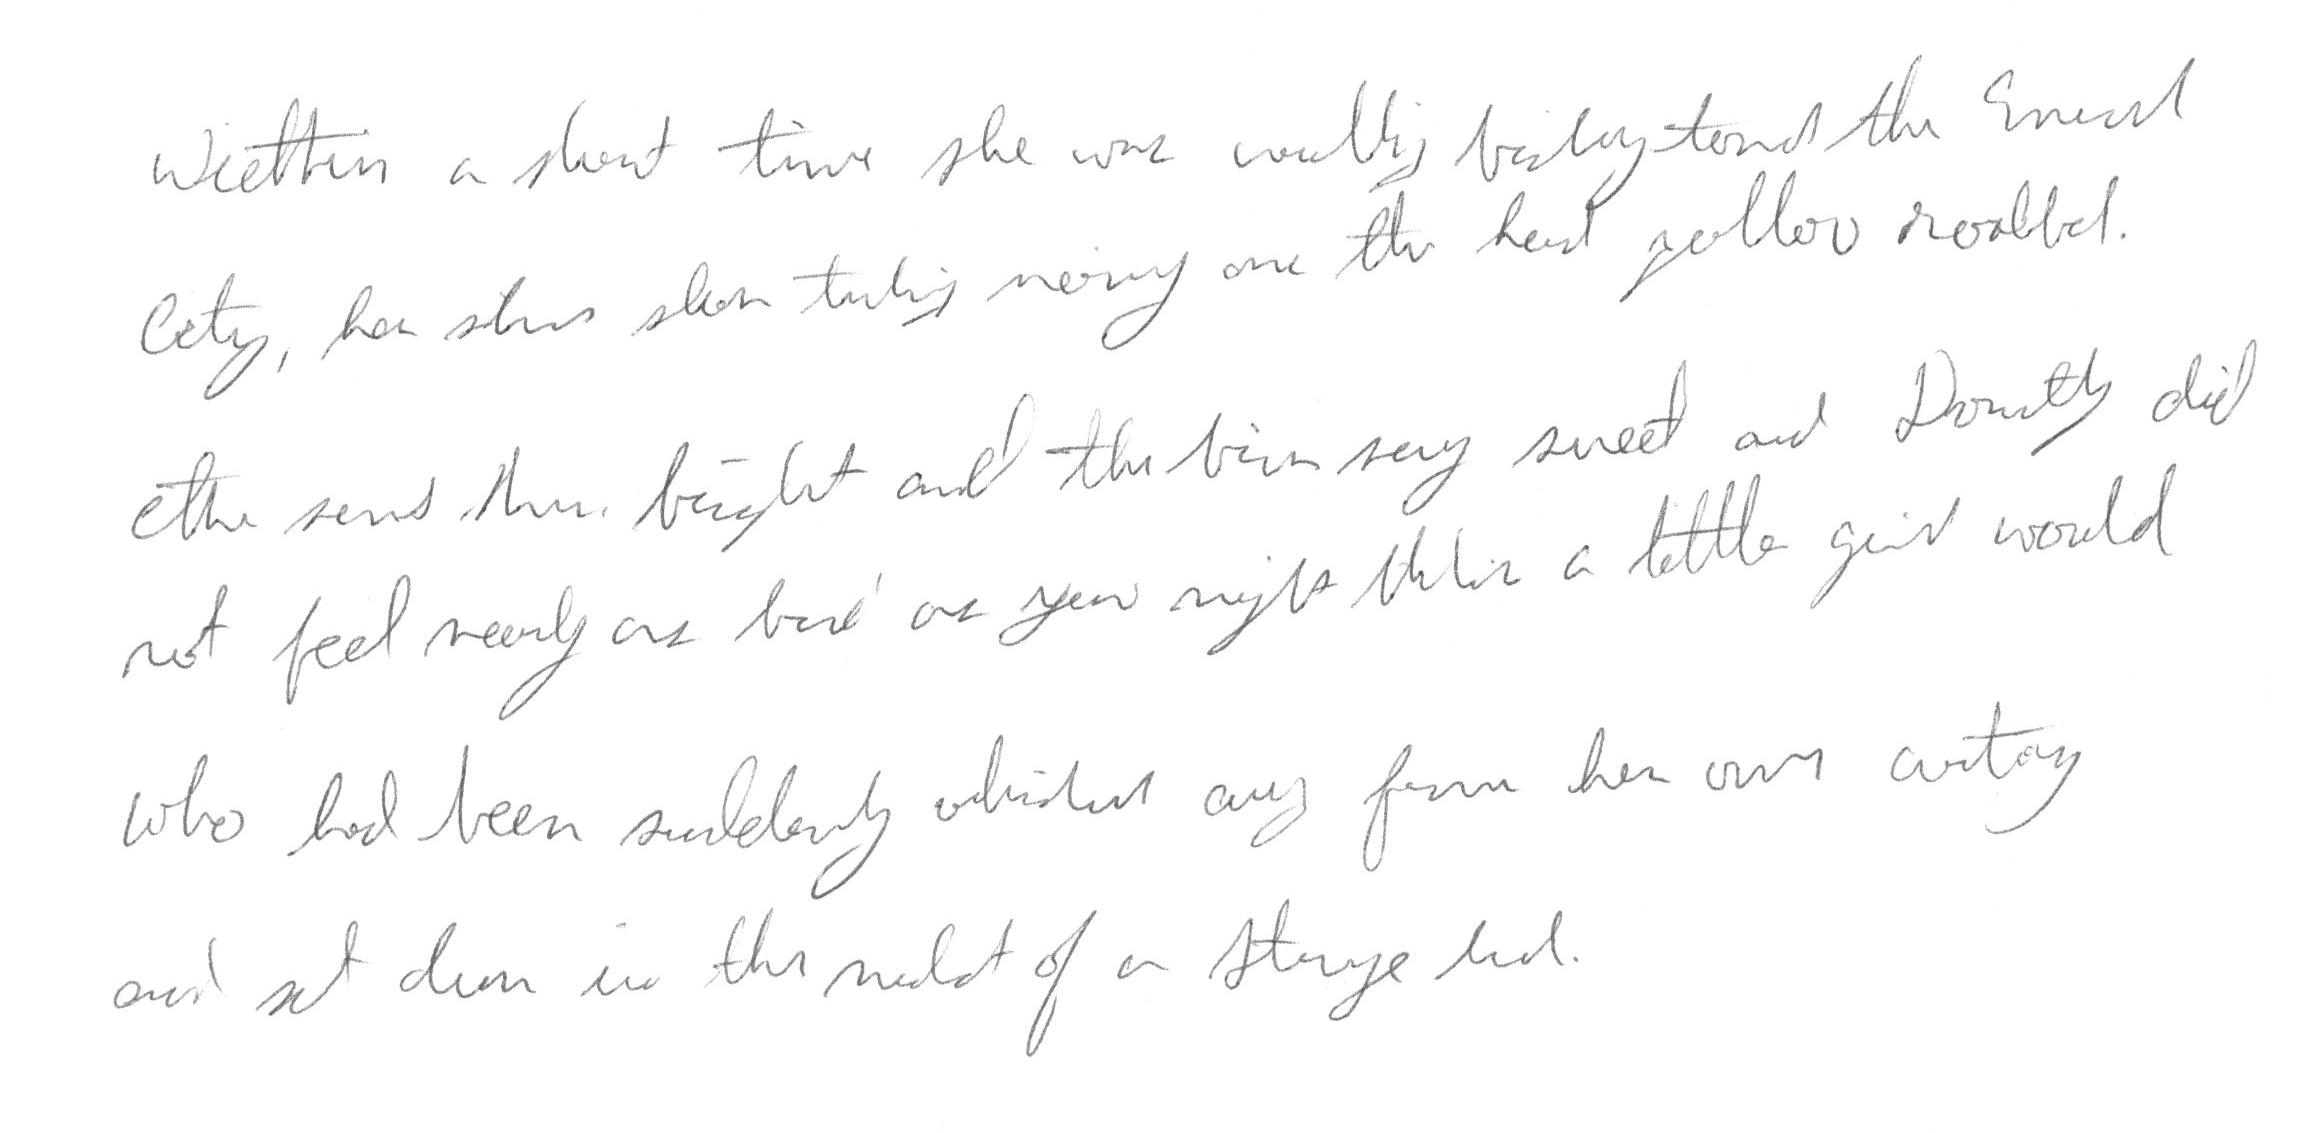 Within a short time she was walking briskly toward the Emerald
City, her silver shoes tinkling merrily on the hard yellow roadbed.
The sun shone bright and the birds sang sweet and Dorothy did
not feel nearly as bad as you might think a little girl would
who had been suddenly whisked away from her own country
and set down in the midst of a strange land.